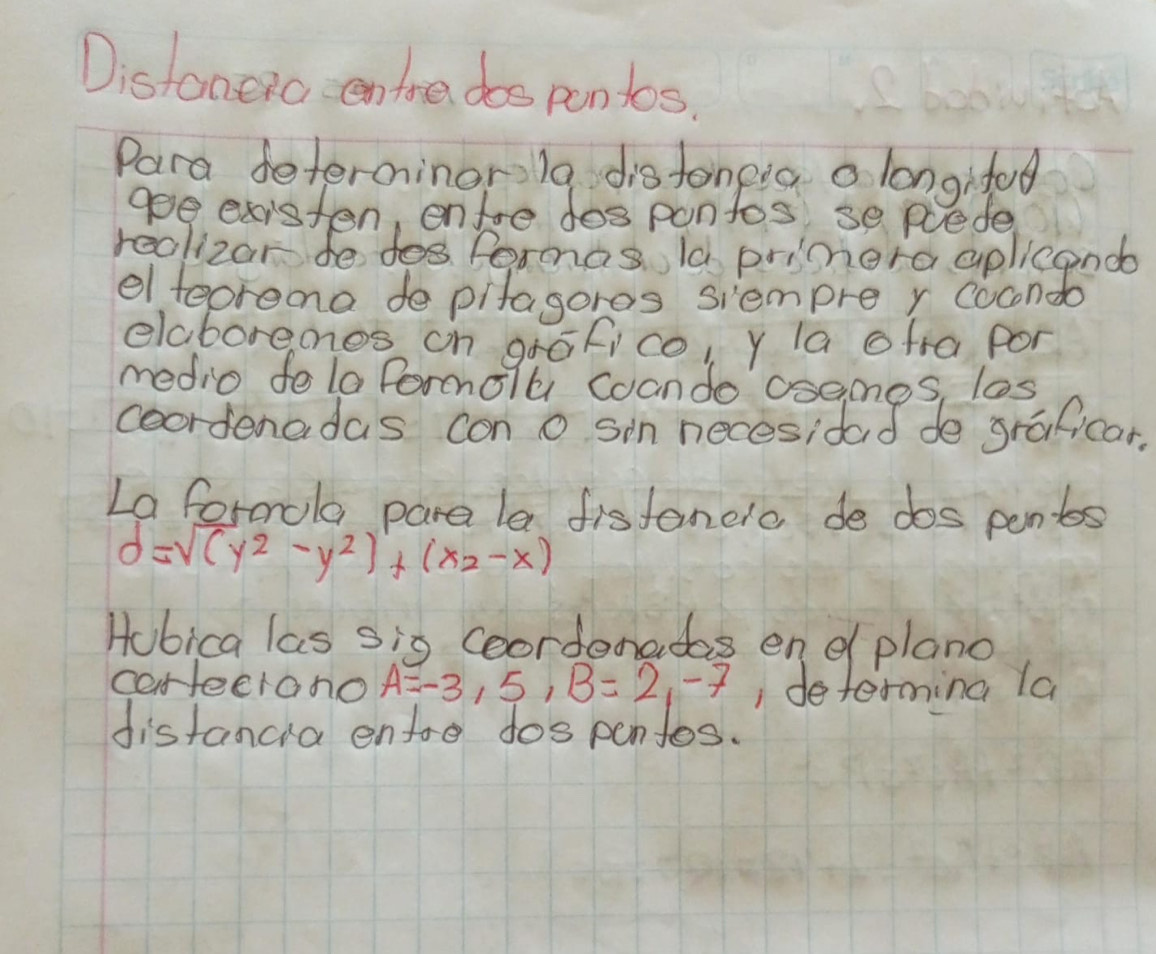 Distancia entre dos puntos.
Para determinar la distancia o longitud
que existen, entre dos puntos se puede
realizar de dos formas la primera aplicando
el teorema de pitagoras siempre y cuando
elaboremos un gráfico, y la otra por
medio de la formula cuando usemos las
coordenadas con o sin necesidad de gráficar.
La formula para la distancia de dos puntos
d=√(y² -y²)+(x₂-x)
Hubica las sig coordenadas en el plano
carteciano A=-3,5, B=2,-7, determina la
distancia entre dos puntos.